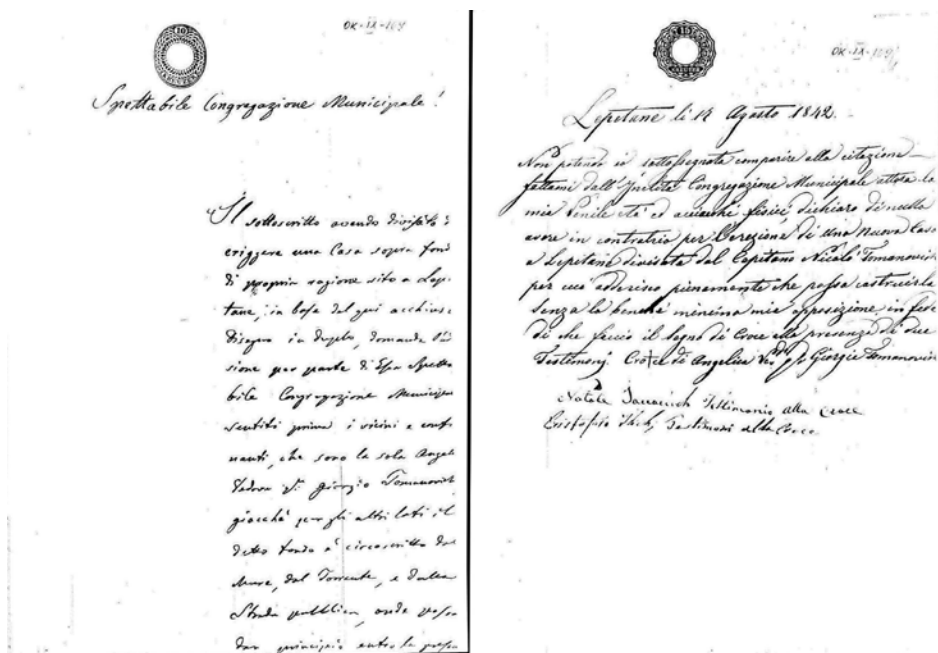 OK-IX-109
Spettabile Congregazione Municipale!
Il sottoscritto avendo divisato
eriggere una Casa sopra fon
di propria ragione sito a Lepe
tane, in base del qui acchius
Disegno in duplo, domanda
sione per parte di Essa Spetta
bile Congregazione Municipa
sentiti prima i vicini e conf
nanti, che sono la sola Angel
Vedova Giorgio Tomanovich
giacchè per gli altri lati il
detto fondo è circoscritto dal
Mare, dal Torrente, e dalla
Strada pubblica, onde possa
dar principio entro la
OK-IX-109/1
15
Lepetane li Agosto 1842.
Non potendo io sottossegnata comparire alla citazione
fattami dall'Inclita Congregazione Municipale attesa la
mia senile età ed acciacchi fisici dichiaro di nulla
avere in contrario per l'erezione di una nuova Casa
a Lepetane divisata dal Capitano Nicolò Tomanovich
per cui adderisco pienamente che possa costruirla
senza la benchè minima mia opposizione, in fede
di che feccio il segno di Croce alla presenza di due
Testimonj. Croce di Angelica Giorgio Tomanovich
Natale Testimonio alla Croce
Cristoforo Testimoni alla Croce